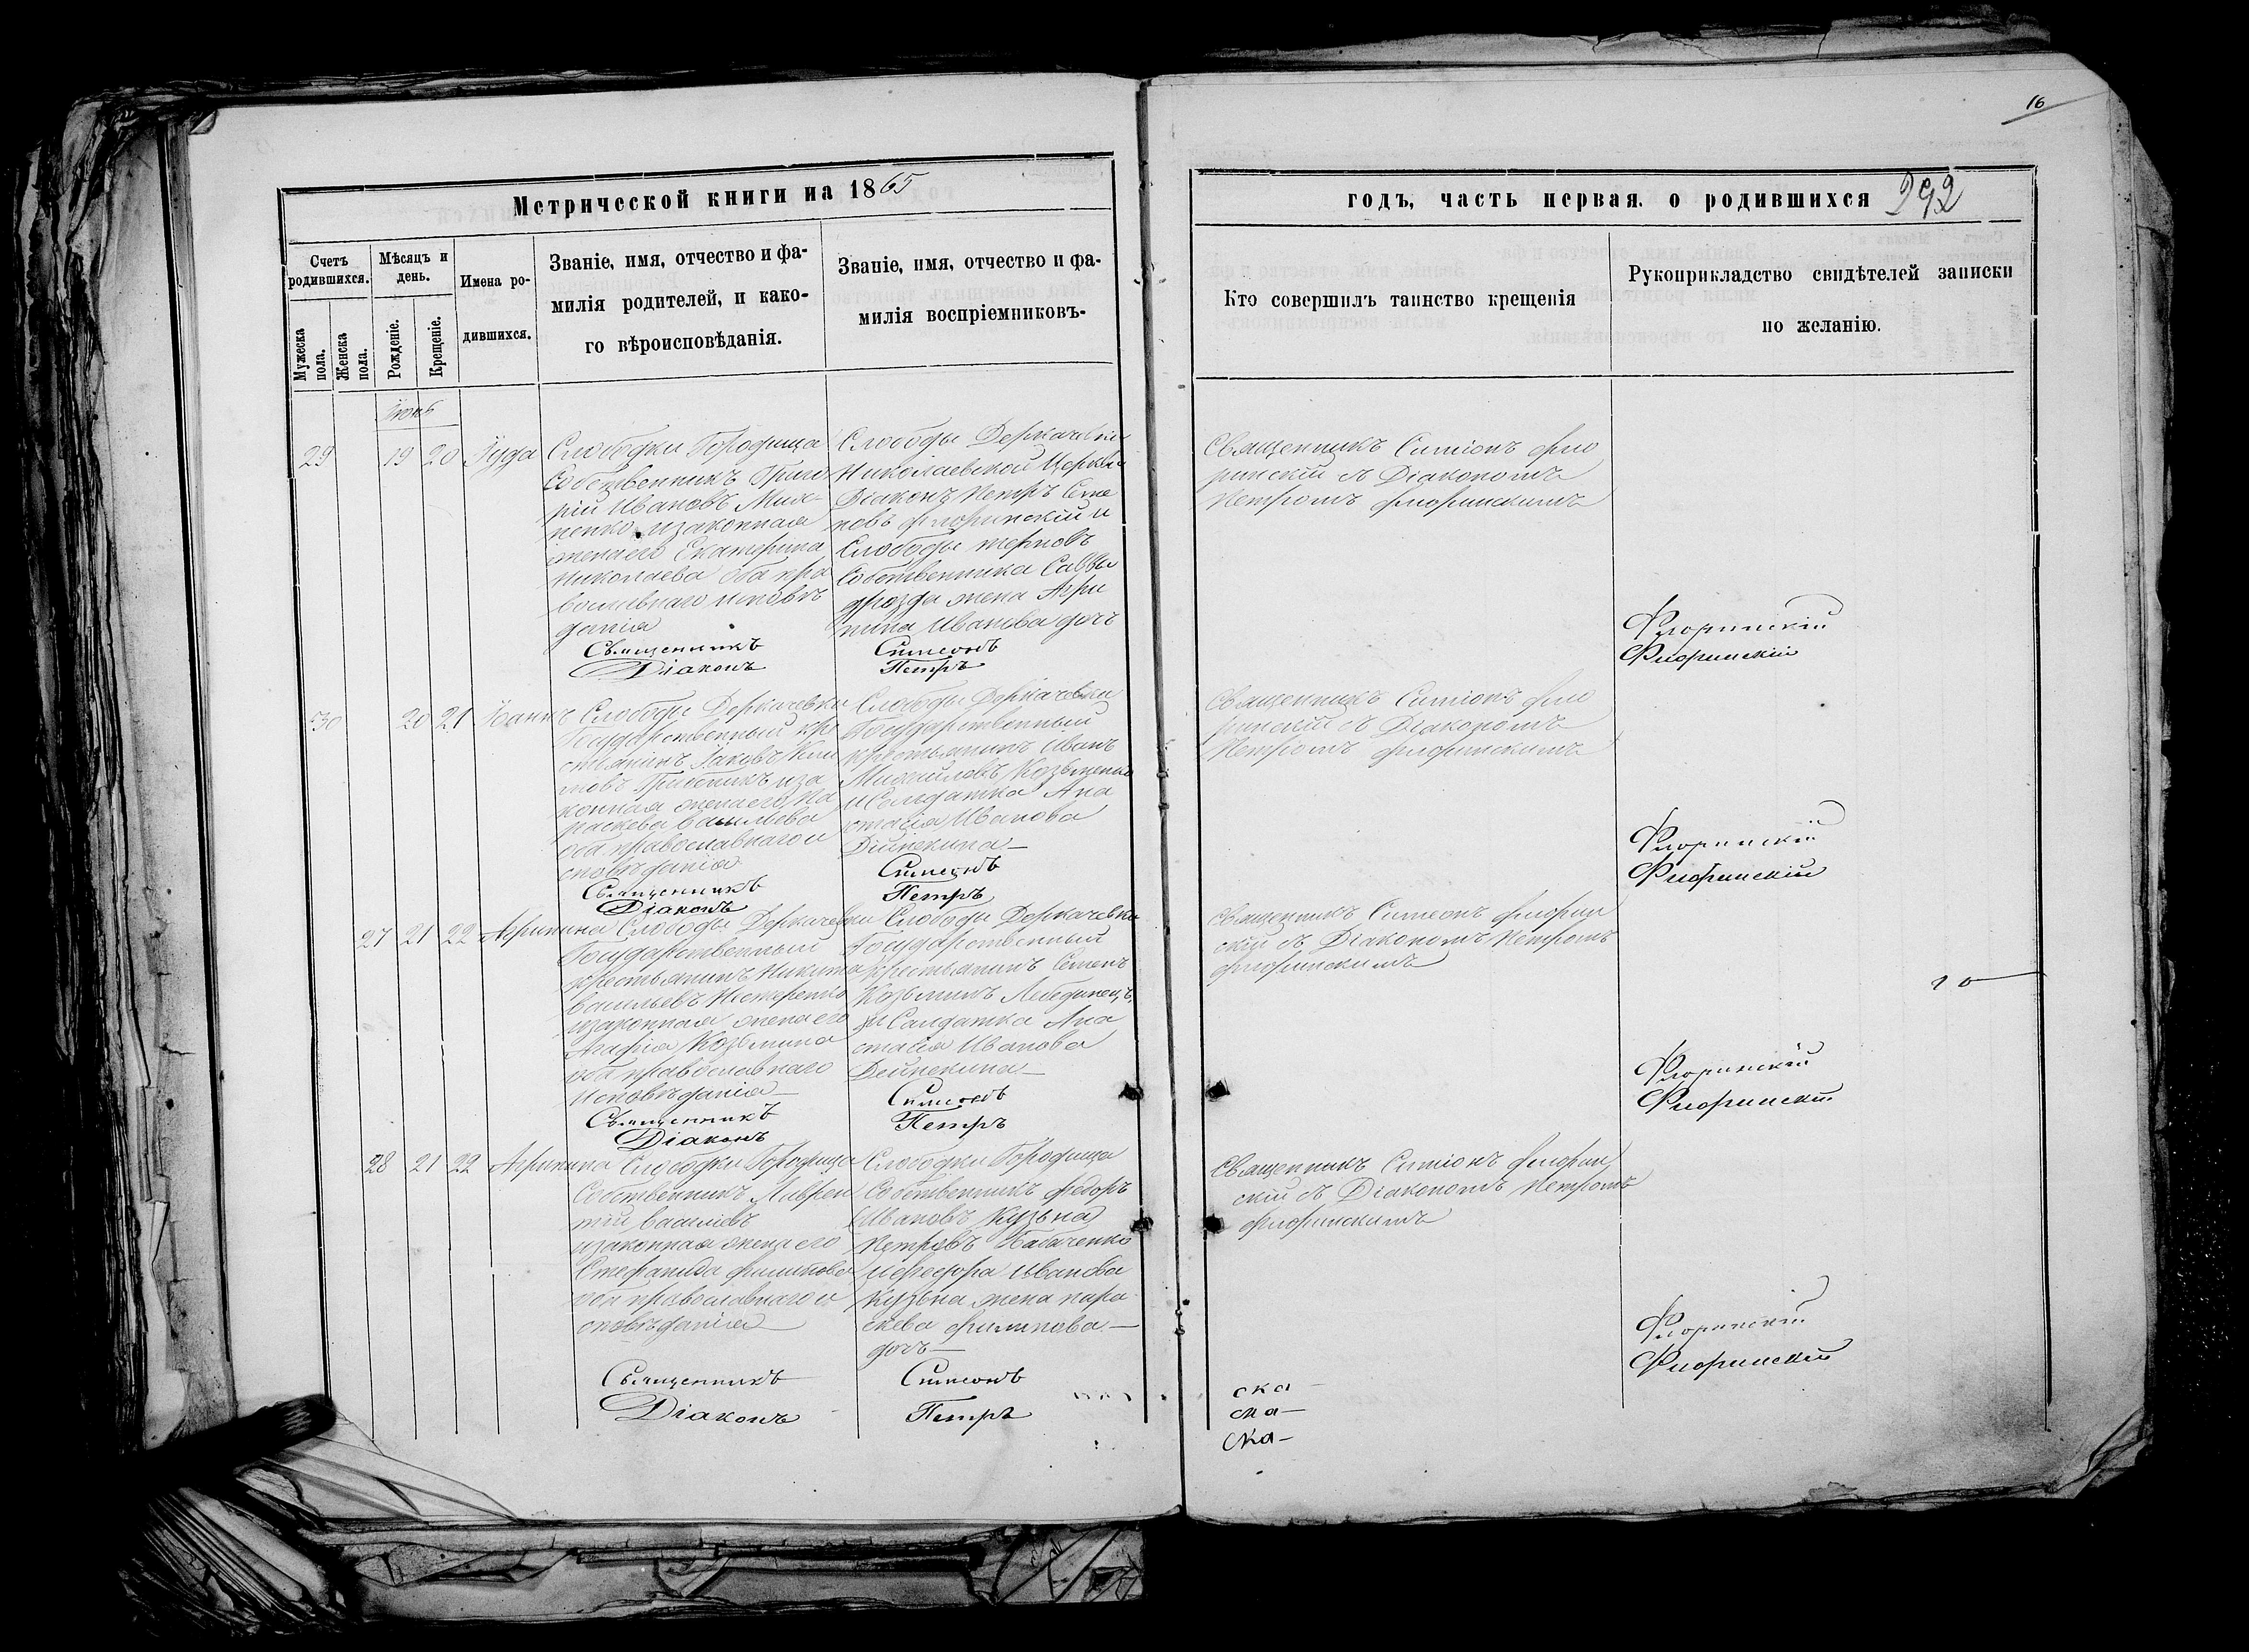 16
Метрической книги на 1865
годъ, часть первая. о родившихся 292
Счетъ родившихся.
Мѣсяцъ и день.
Имена ро-
дившихся.
Званіе, имя, отчество и фа-
милія родителей, и како-
го вѣроисповѣданія.
Званіе, имя, отчество и фа-
милія воспріемниковъ.
Мужеска пола.
Женска пола.
Рожденіе.
Крещеніе.
Кто совершилъ таинство крещенія
Рукоприкладство свидѣтелей записки
по желанію.
Іюнь
29 19 20 Іуда
Слободки Городища
Собственникъ Григо
рій Ивановъ
и законная
жена его Екатерина
Николаева оба пра
вославнаго исповѣ
данія
Священникъ
Діаконъ
Слободы Деркачевки
Николаевской Церкви
Діаконъ Петръ Симе
новъ Флоринскій и
Слободы терновъ
Собственника Саввы
дрозда жена Агри
пина Иванова дочь
Симеонъ
Петръ
Священникъ Симіонъ Фло
ринскій съ Діакономъ
Петромъ Флоринскимъ
Флоринскій
Флоринскій
30 20 21 Іоаннъ
Слободы Деркачевки
Государственный кре
стьянинъ Іаковъ Кли
мовъ и за
конная жена его Па
раскева Васильева
оба православнаго и
сповѣданія
Священникъ
Діаконъ
Слободы Деркачевки
Государственный
крестьянинъ Иванъ
Михайловъ Козьменко
и Салдатка Ана
стасія Иванова
Дійнекина
Симеонъ
Петръ
Священникъ Симіонъ Фло
ринскій съ Діакономъ
Петромъ Флоринскимъ
Флоринскій
Флоринскій
27 21 22 Агрипина
Слободы Деркачевки
Государственный
крестьянинъ Никита
Васильевъ Нестеренко
и законная жена его
Агафія Козьмина
оба православнаго
исповѣданія
Священникъ
Діаконъ
Слободы Деркачевки
Государственный
крестьянинъ Семенъ
Козьминъ Лебединецъ
и Салдатка Ана
стасія Иванова
Дейнекина
Симеонъ
Петръ
Священникъ Симеонъ Флорин
скій съ Діакономъ Петромъ
Флоринскимъ
Флоринскій
Флоринскій
28 21 22 Агрипина
Слободки Городища
Собственникъ Лаврен
тій Василіевъ
и законная жена его
Стефанида Филипова
оба православнаго и
сповѣданія
Священникъ
Діаконъ
Слободки Городища
Собственникъ Федоръ
Ивановъ Кузьна
Петровъ Бабаченко
и Феодора Иванова
Кузьна жена пара
скева Филипова
дочь
Симеонъ
Петръ
Священникъ Симіонъ Флорин
скій съ Діакономъ Петромъ
Флоринскимъ
Флоринскій
Флоринскій
ска
ска
ска